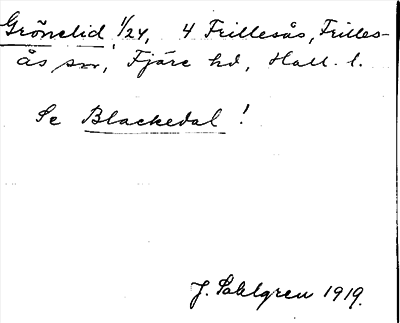 Grönelid, 1/24, 4 Frillesås, Frilles-
ås sn, Fjäre hd, Hall. l.
Se Blackedal !
J. Sahlgren 1919.